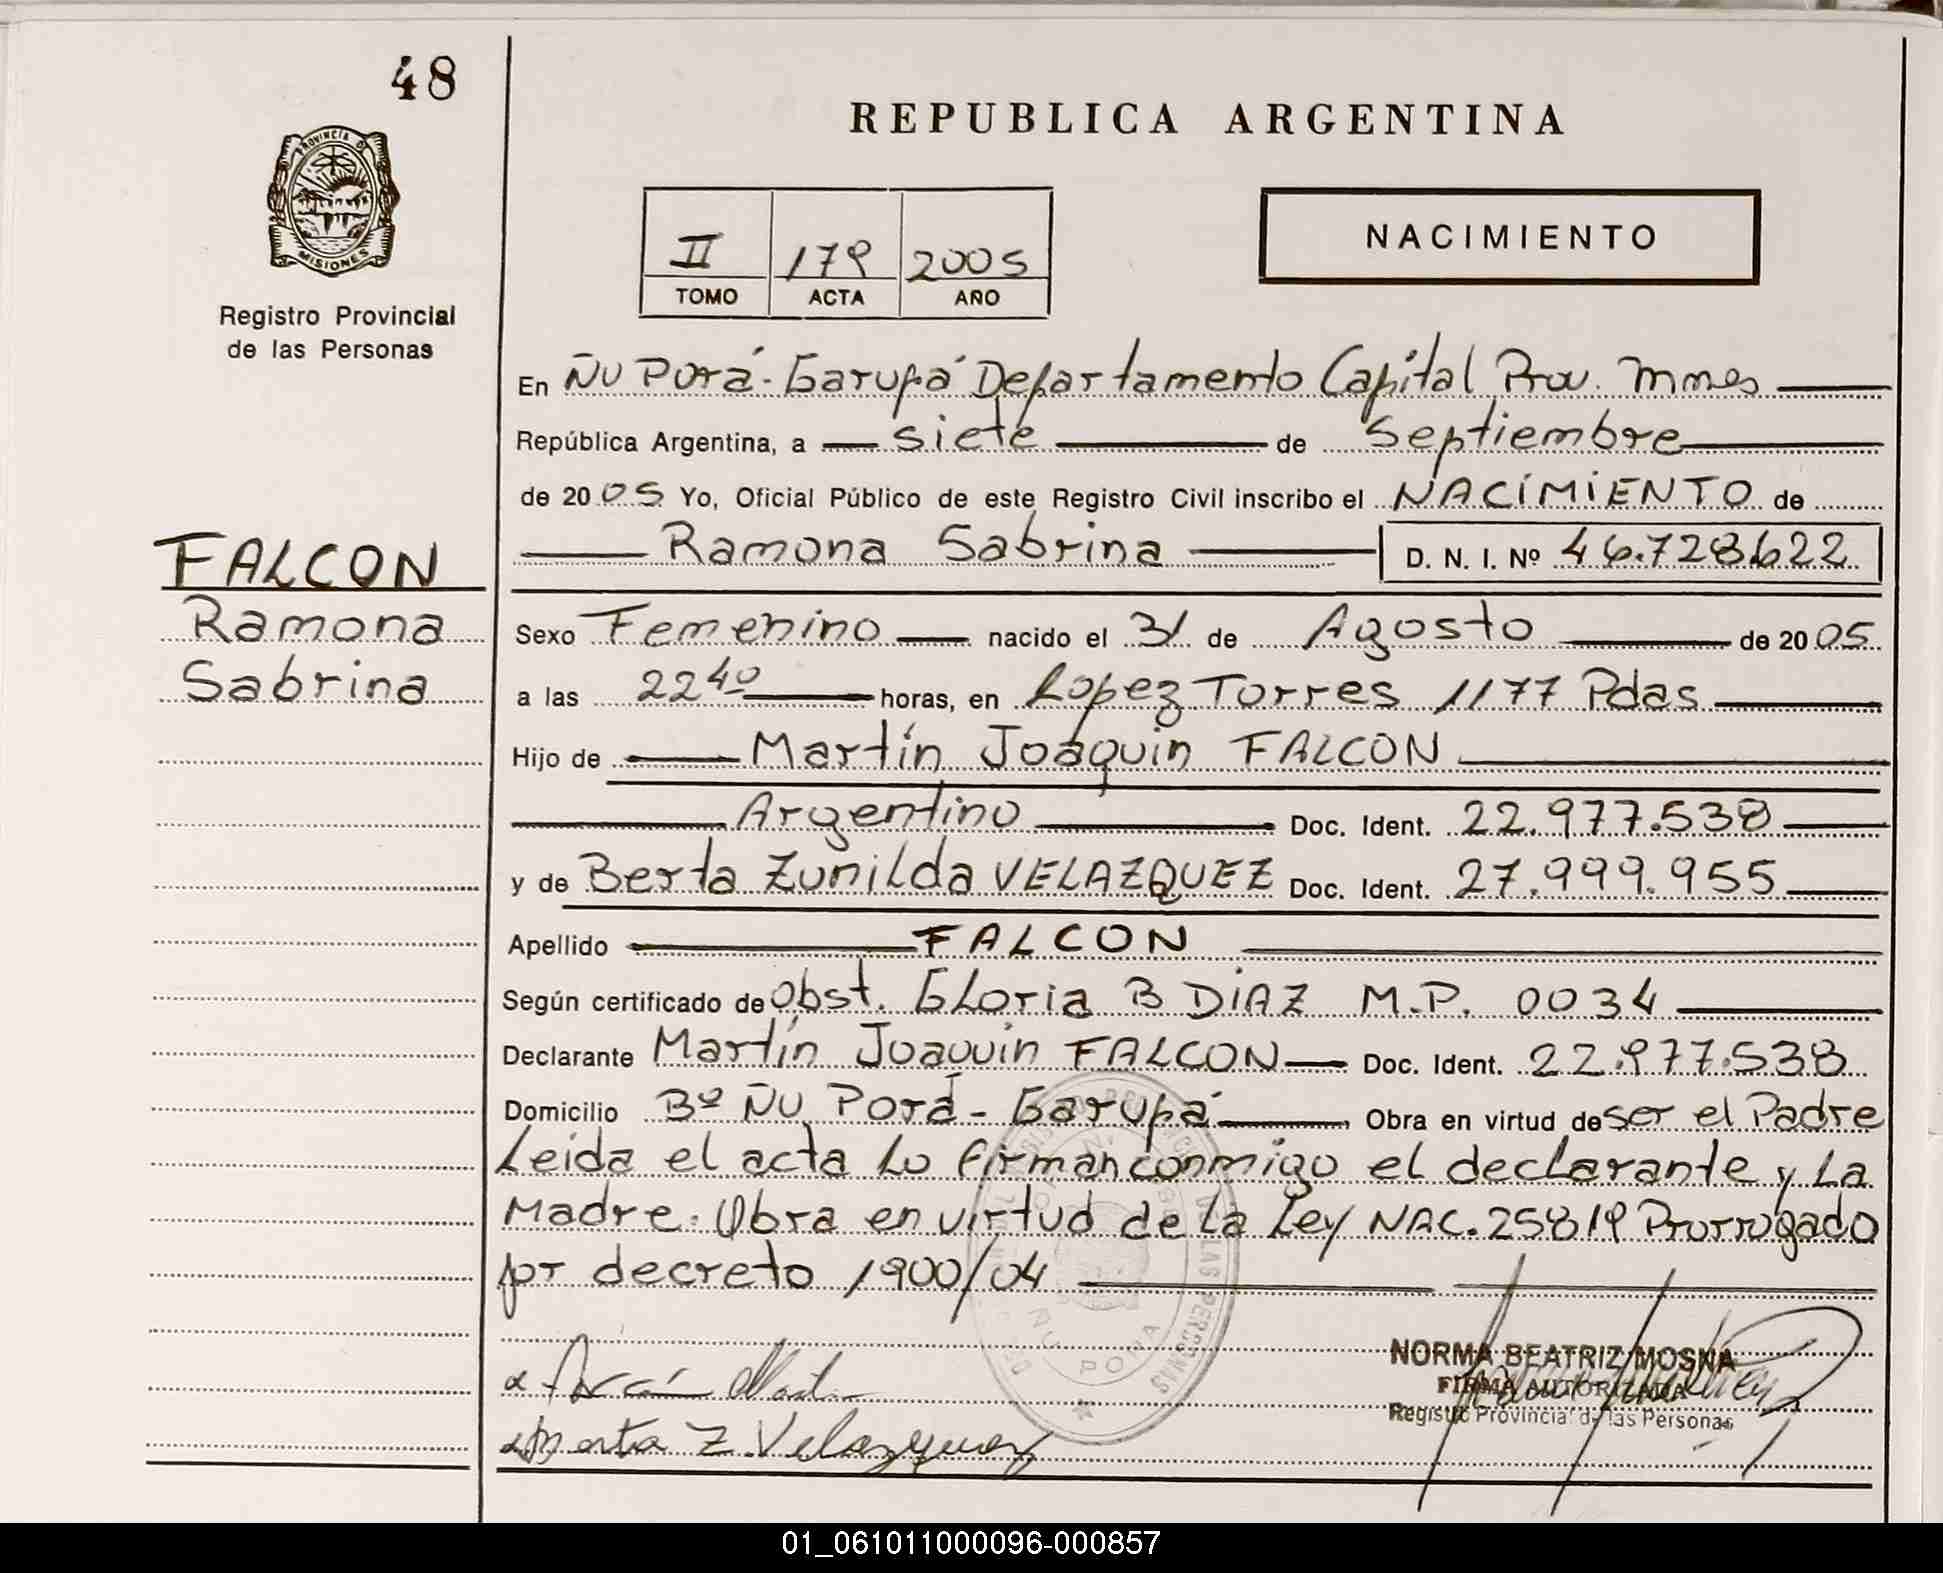 48
PROVINCIA DE
MISIONES
Registro Provincial
de las Personas
FALCON
Ramona
Sabrina
REPUBLICA ARGENTINA
II 179 2005
TOMO ACTA AÑO
NACIMIENTO
En Ñu Porá - Garupá Departamento Capital Prov. Mnes
República Argentina, a siete de Septiembre
de 2005 Yo, Oficial Público de este Registro Civil inscribo el NACIMIENTO de
Ramona Sabrina D. N. I. Nº 46.728.622
Sexo Femenino nacido el 31 de Agosto de 2005
a las 22 40 horas, en Lopez Torres 1177 Pdas
Hijo de Martín Joaquin FALCON
Argentino Doc. Ident. 22.977.538
y de Berta Zunilda VELAZQUEZ Doc. Ident. 27.999.955
Apellido FALCON
Según certificado de Obst. Gloria B DIAZ M.P. 0034
Declarante Martín Joaquin FALCON Doc. Ident. 22.977.538
Domicilio Bº Ñu Porá - Garupá Obra en virtud de ser el Padre
Leida el acta Lo firman conmigo el declarante y La
Madre. Obra en virtud de la Ley NAC. 25819 Prorrogado
por decreto 1900/04
NORMA BEATRIZ MOSNA
FIRMA AUTORIZADA
Registro Provincial de las Personas
Berta Z. Velazquez
01_061011000096-000857